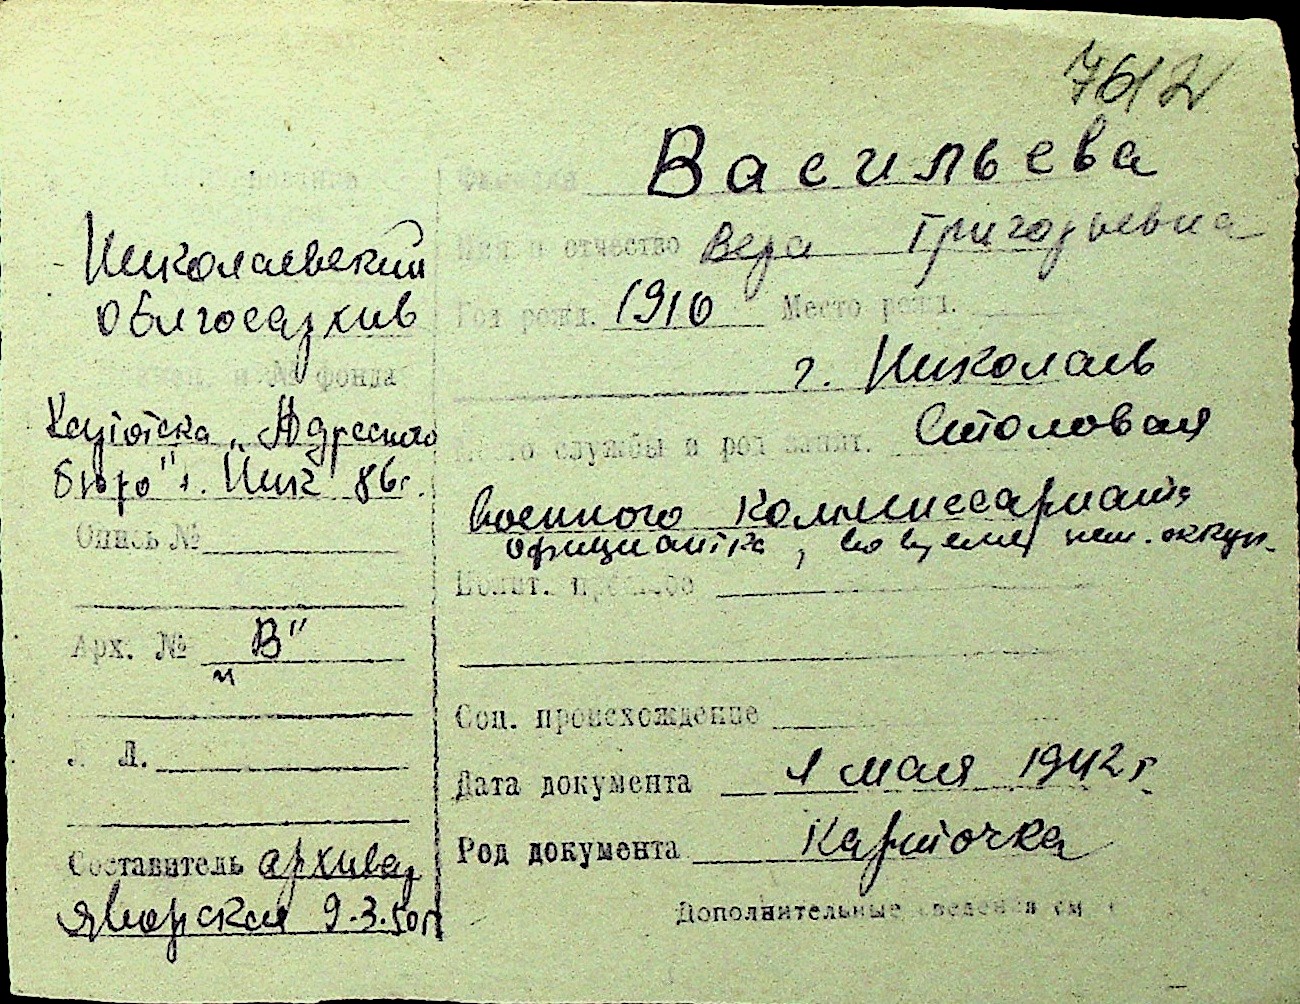 7612
Фамилия Васильева
Имя и отчество Вера Григорьевна
Год рожд. 1910 Место рожд.
г. Николаев
Место службы и род занят. Столовая
военного комиссариата
официантка, во время нем. оккуп.
Полит. прошлое
Соц. происхождение
Дата документа 1 мая 1942 г.
Род документа Карточка
Дополнительные сведения см
Николаевский
Облгосархив
и № фонда
Картотека „Адресного
бюро" г. Ник
Опись №
Арх. № „В"
Л.
Составитель архивар
Яворская 9.3.50г